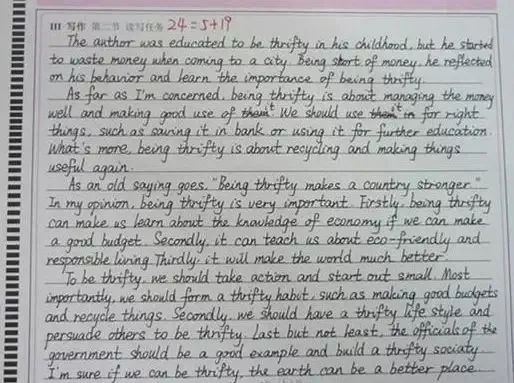 III 写作 第二节 读写任务 24=5+19
The author was educated to be thrifty in his childhood, but he started
to waste money when coming to a city. Being short of money, he reflected
on his behavior and learn the importance of being thrifty.
As far as I'm concerned, being thrifty is about managing the money
well and making good use of them it. We should use them it in for right
things, such as saving it in bank or using it for further education.
What's more, being thrifty is about recycling and making things
useful again.
As an old saying goes, "Being thrifty makes a country stronger."
In my opinion, being thrifty is very important. Firstly, being thrifty
can make us learn about the knowledge of economy if we can make
a good budget. Secondly, it can teach us about eco-friendly and
responsible living. Thirdly, it will make the world much better.
To be thrifty, we should take action and start out small. Most
importantly, we should form a thrifty habit, such as making good budgets
and recycle things. Secondly, we should have a thrifty life style and
persuade others to be thrifty. Last but not least, the officials of the
government should be a good example and build a thrifty sociaty.
I'm sure if we can be thrifty, the earth can be a better place.